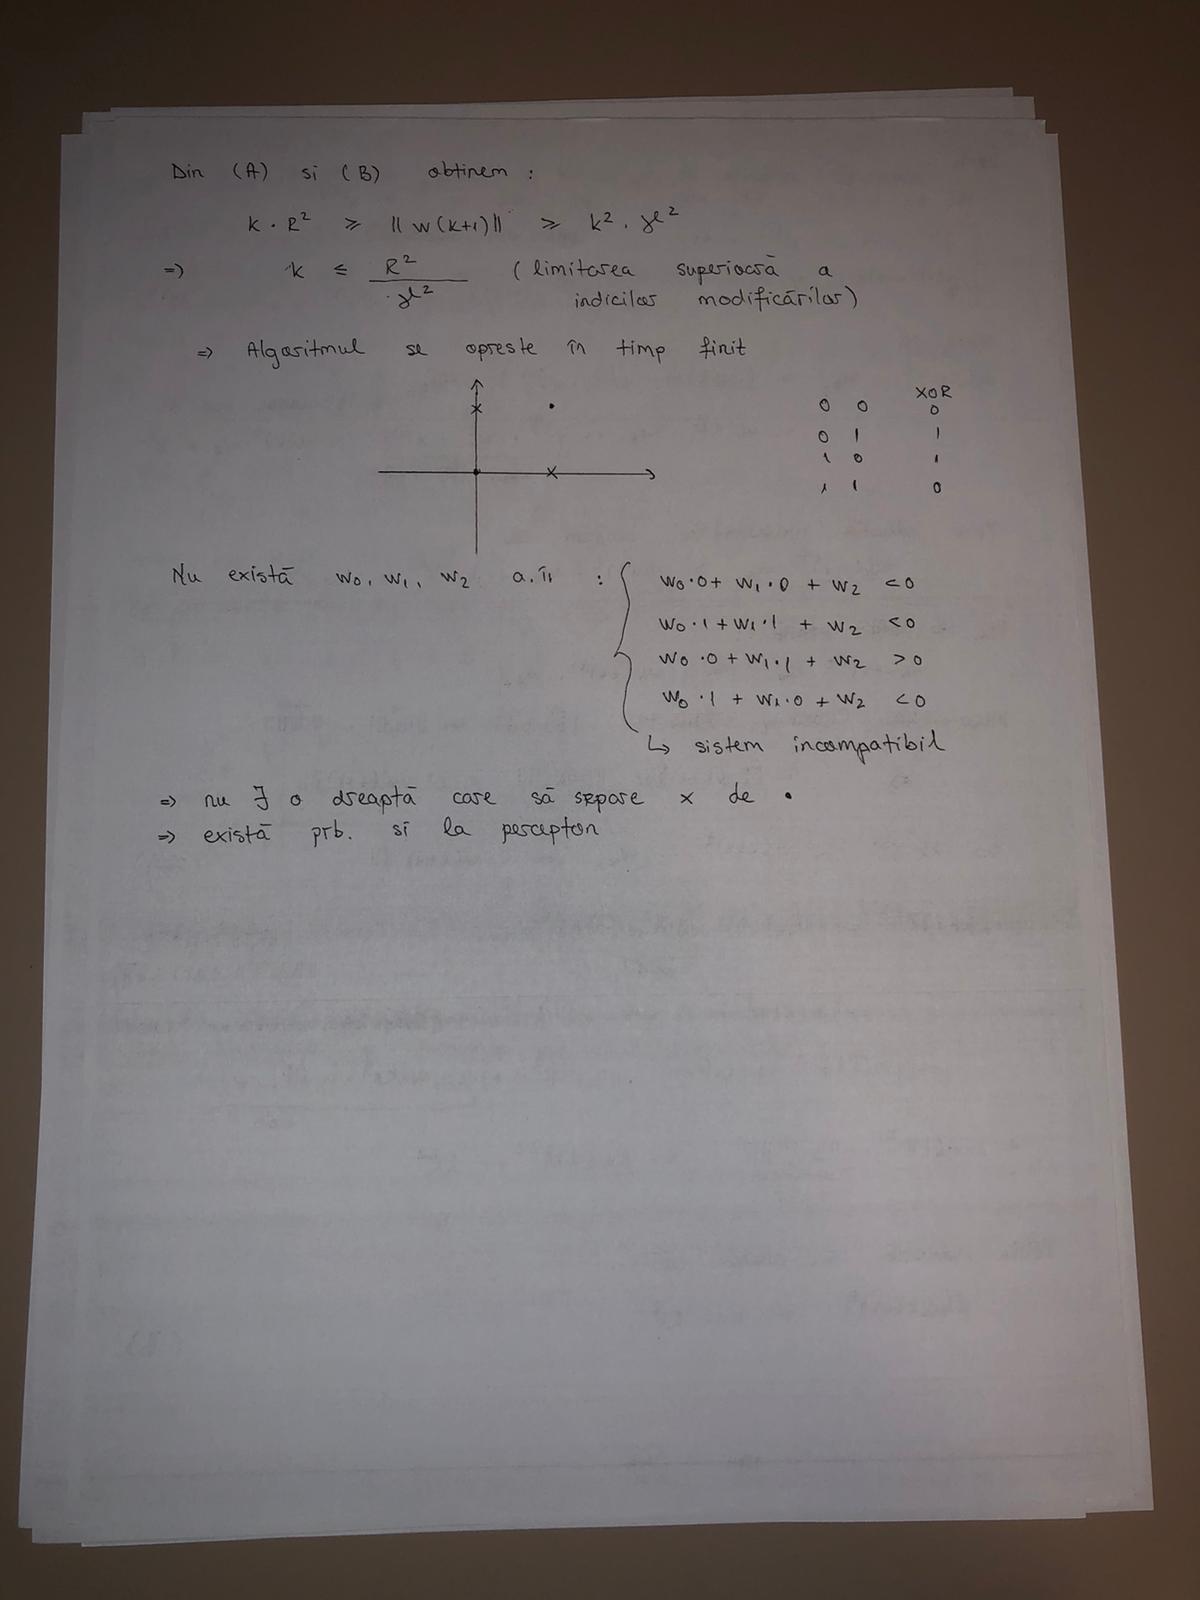 Din (A) si (B) obtinem :
k · R² ⩾ || w(k+1) || ⩾ k² · γ²
=> k ≤ R² / γ² ( limitarea superioară a
indicilor modificărilor)
=> Algoritmul se opreste în timp finit
XOR
0 0 0
0 1 1
1 0 1
1 1 0
Nu există w₀, w₁, w₂ a.î :
w₀·0 + w₁·0 + w₂ <0
w₀·1 + w₁·1 + w₂ <0
w₀·0 + w₁·1 + w₂ >0
w₀·1 + w₁·0 + w₂ <0
↳ sistem incompatibil
=> nu ∃ o dreaptă care să separe x de •
=> există prb. si la percepton